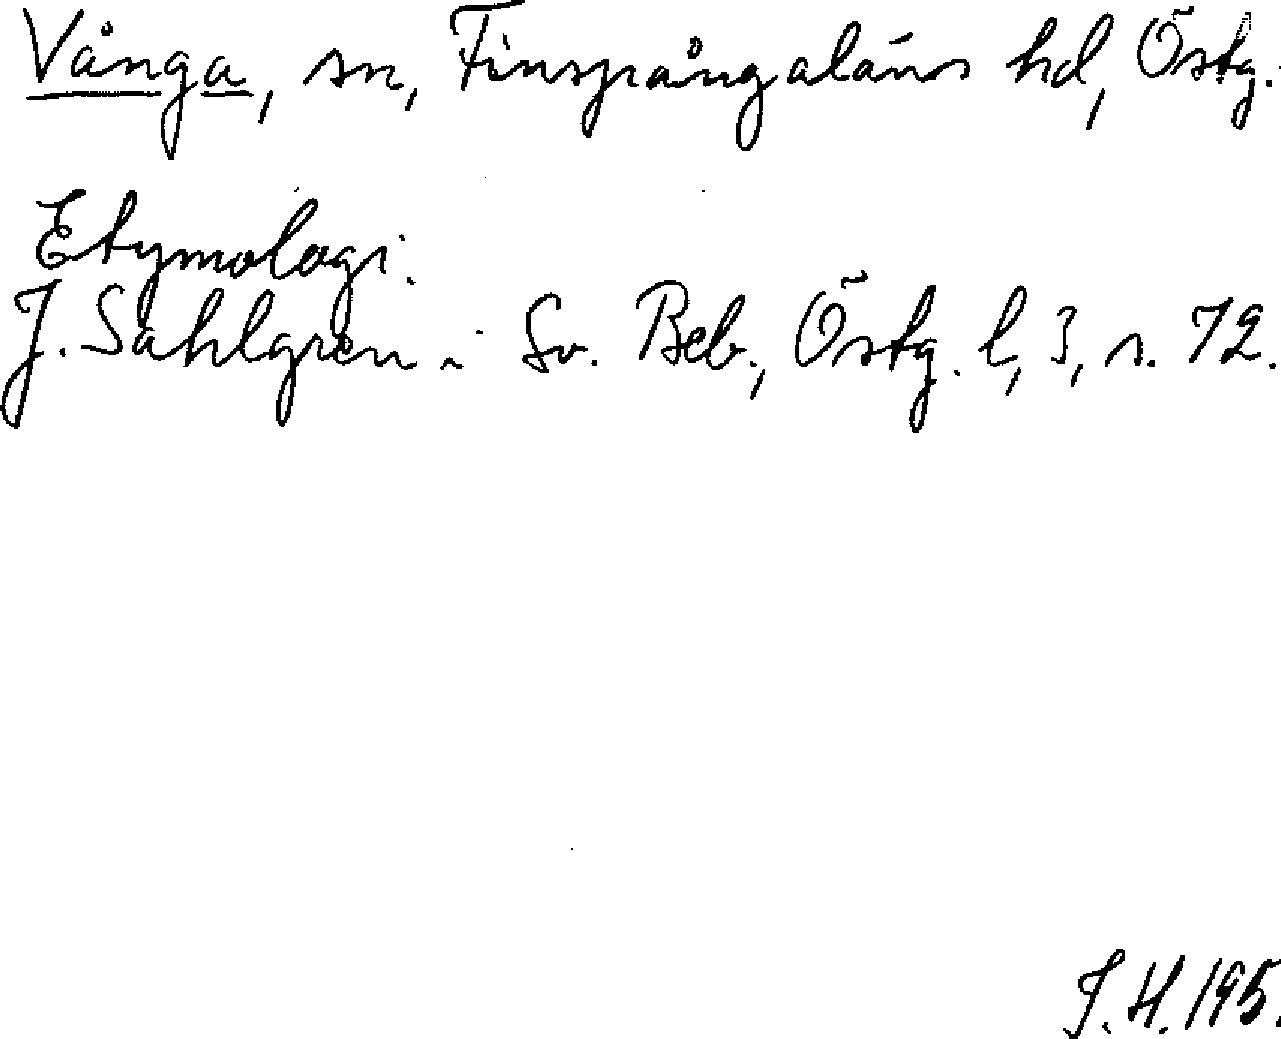 Vånga, sn, Finspångaläns hd, Östg.
Etymologi.
J. Sahlgren i Sv. Beb., Östg. l, 3, s. 72.
J.H. 195.